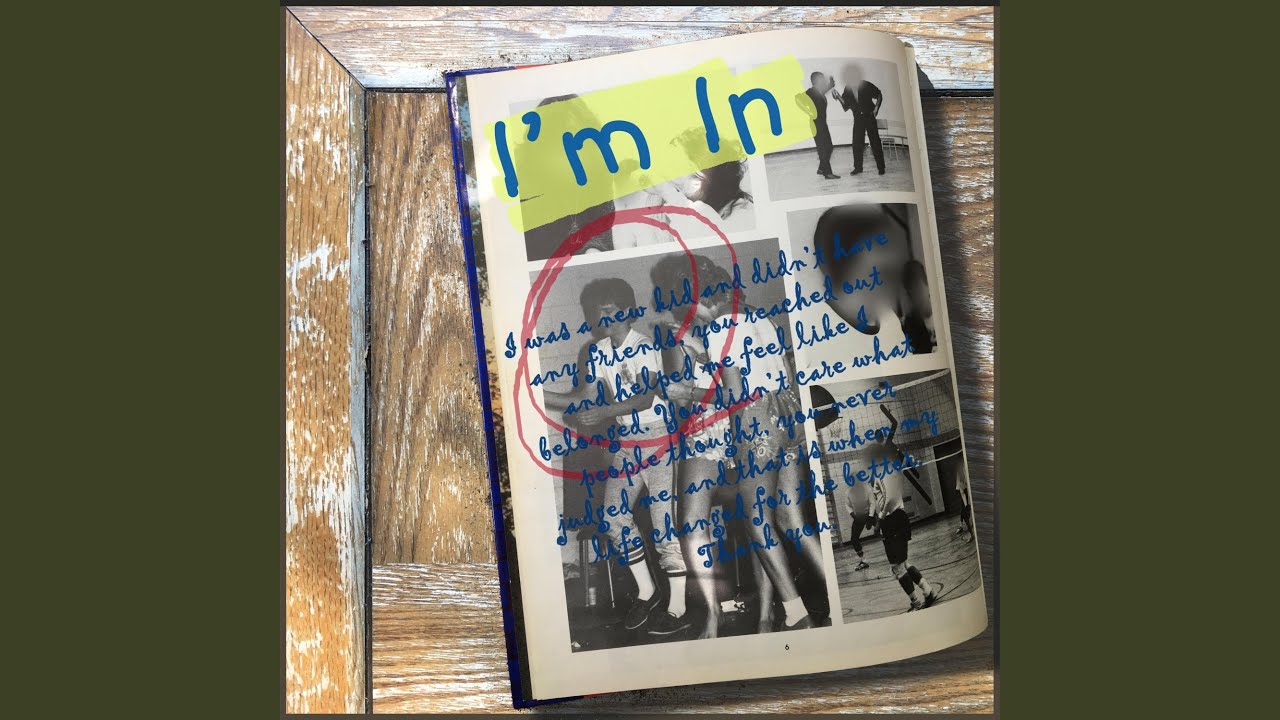 I'm In
I was a new kid and didn't have
any friends, you reached out
and helped me feel like I
belonged. You didn't care what
people thought, you never
judged me, and that is when my
life changed for the better.
Thank you.
6